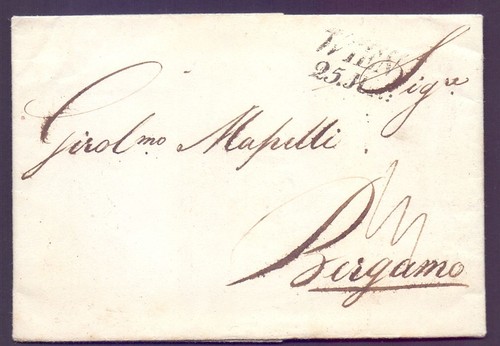 WIEN
25.
Sig.re
Girol.mo Mapelli
Bergamo